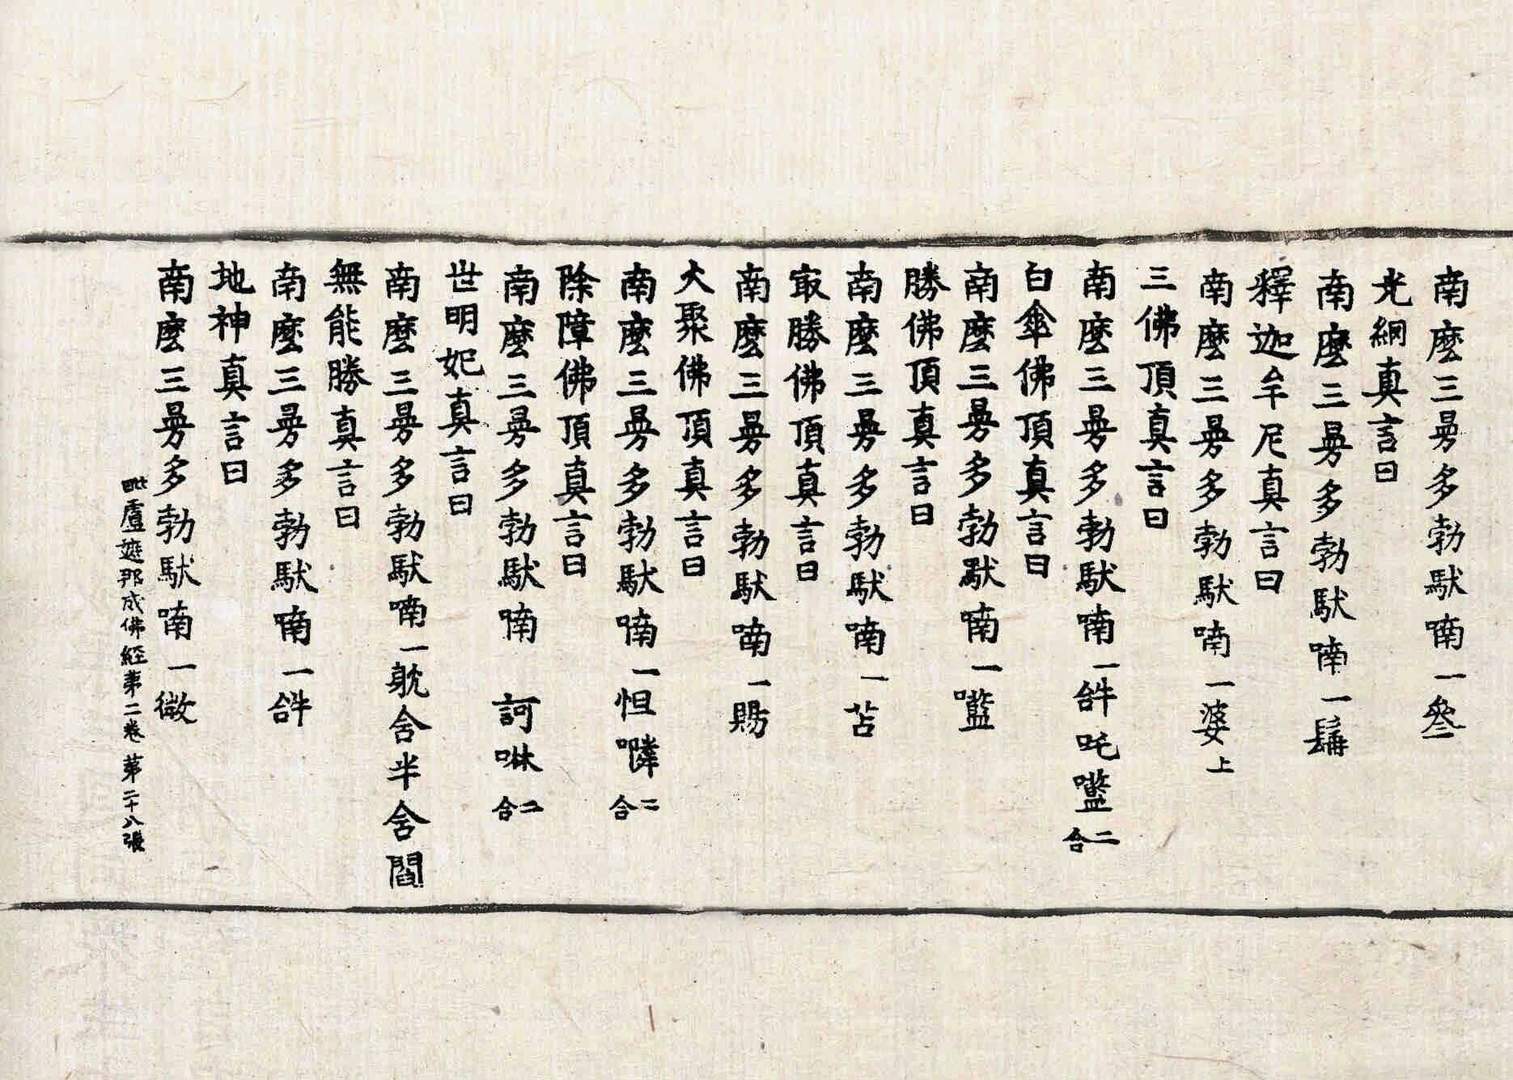 南麼三曼多勃馱喃一叅
光網真言曰
南麼三曼多勃馱喃一髯
釋迦牟尼真言曰
南麼三曼多勃馱喃一婆上
三佛頂真言曰
南麼三曼多勃馱喃一𤙖吒嚂二合
白傘佛頂真言曰
南麼三曼多勃馱喃一嚂
勝佛頂真言曰
南麼三曼多勃馱喃一苫
冣勝佛頂真言曰
南麼三曼多勃馱喃一賜
大聚佛頂真言曰
南麼三曼多勃馱喃一怛噒二合
除障佛頂真言曰
南麼三曼多勃馱喃 訶啉二合
世明妃真言曰
南麼三曼多勃馱喃一躭含半含閻
無能勝真言曰
南麼三曼多勃馱喃一𤙖
地神真言曰
南麼三曼多勃馱喃一微
毗盧遮那成佛經第二卷 第二十八張